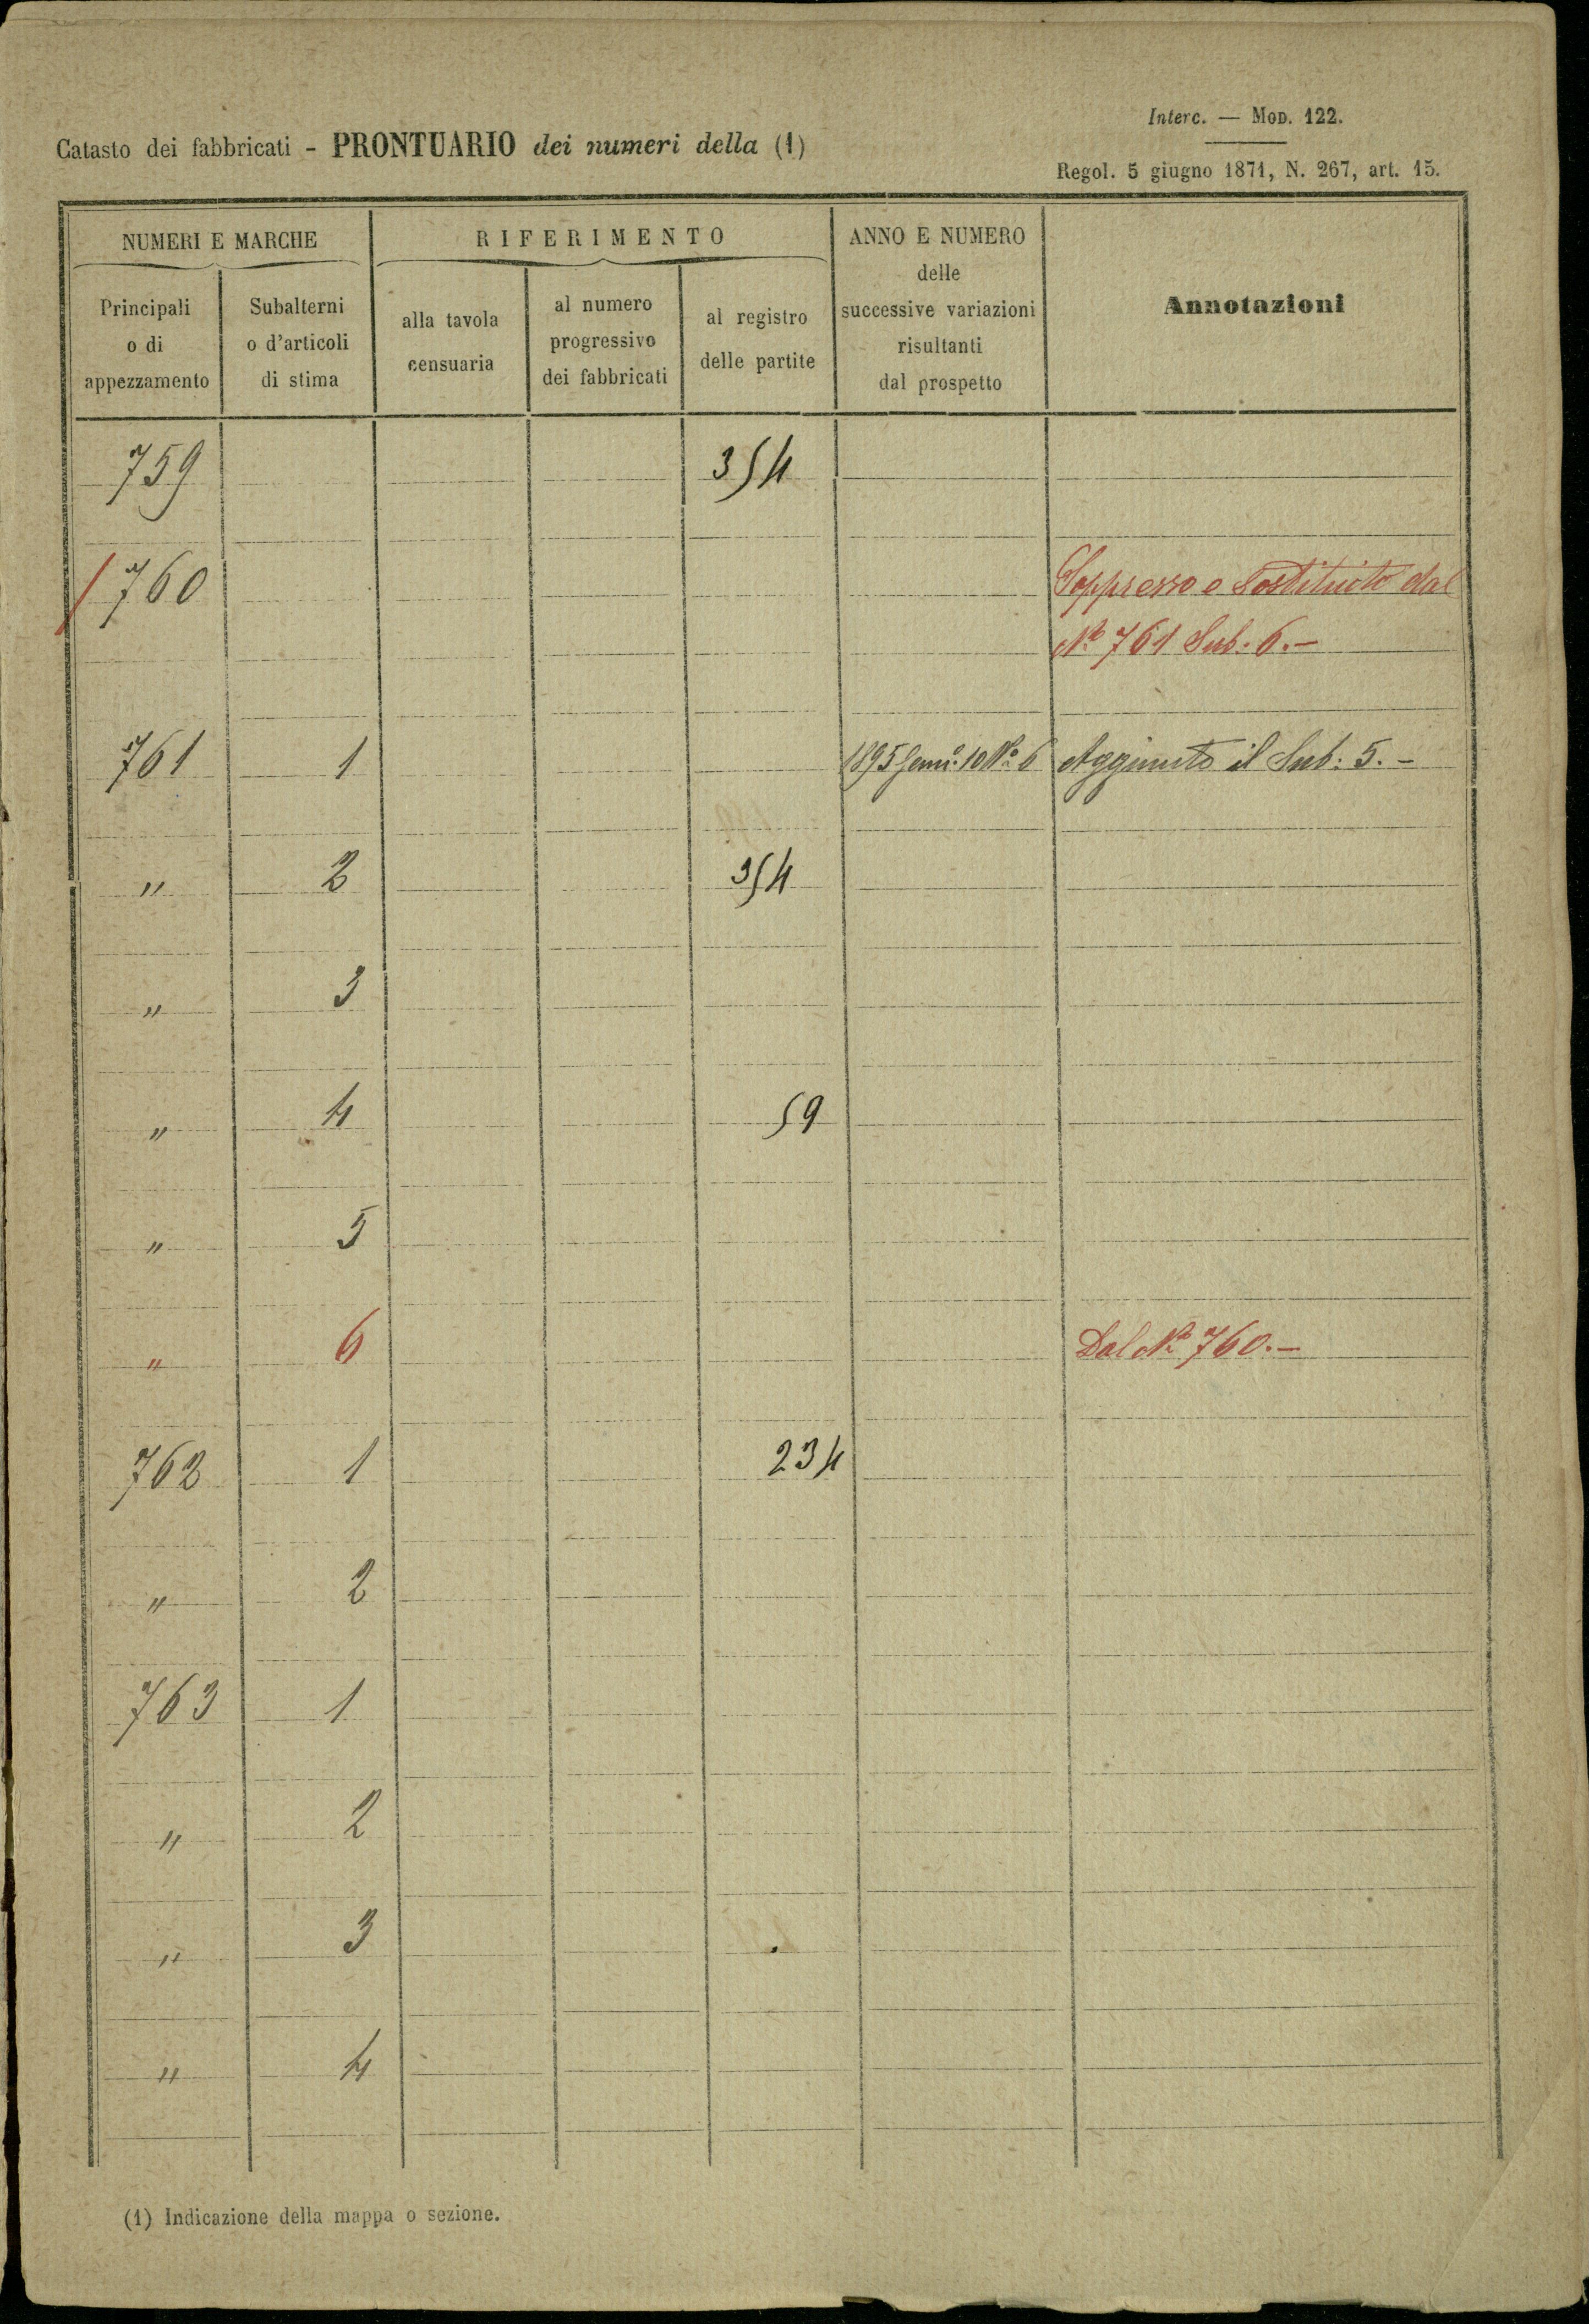 Interc. — Mod. 122.
Catasto dei fabbricati - PRONTUARIO dei numeri della (1)
Regol. 5 giugno 1871, N. 267, art. 15.
NUMERI E MARCHE
RIFERIMENTO
ANNO E NUMERO
delle
successive variazioni
risultanti
dal prospetto
Annotazioni
Principali
o di
appezzamento
Subalterni
o d'articoli
di stima
alla tavola
censuaria
al numero
progressivo
dei fabbricati
al registro
delle partite
759 354
760 Soppresso e Sostituito dal
No 761 Sub: 6.-
761 1 1895 Genn.o 10 No 6 Aggiunto il Sub: 5.-
" 2 354
" 3
" 4 59
" 5
" 6 Dal No 760.-
762 1 234
" 2
763 1
" 2
" 3
" 4
(1) Indicazione della mappa o sezione.